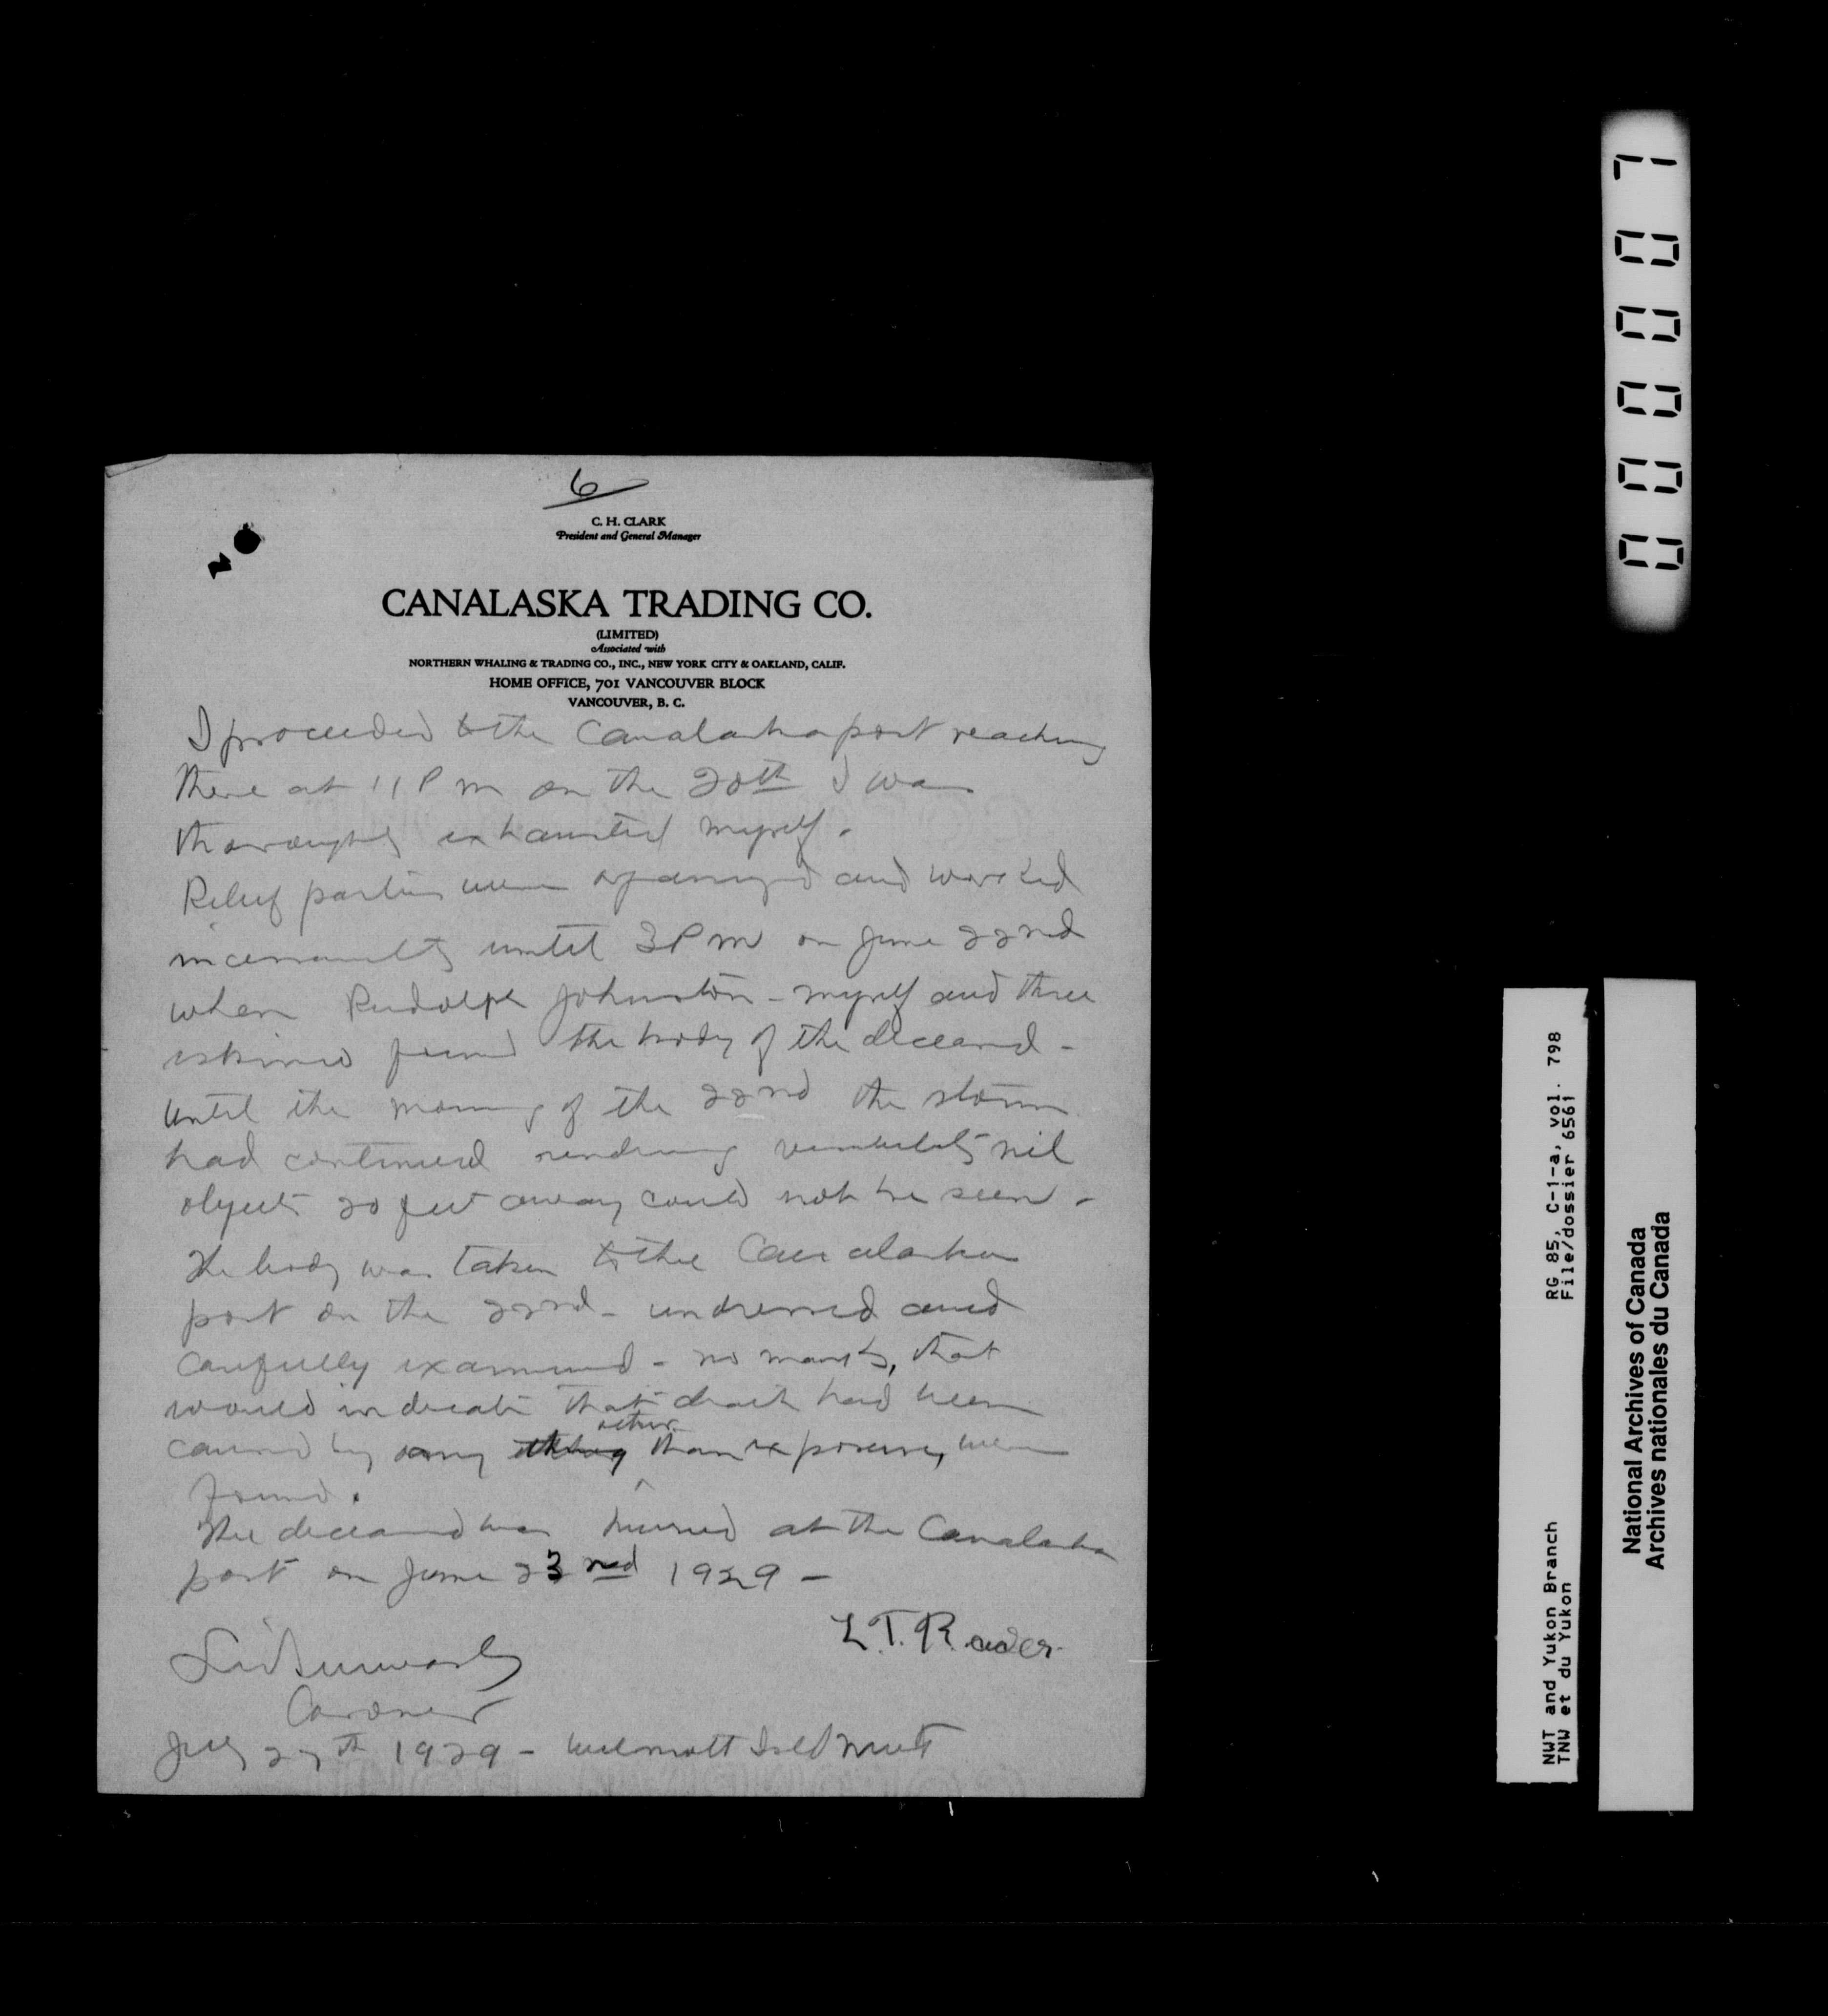 6
C. H. CLARK
President and General Manager
CANALASKA TRADING CO.
(LIMITED)
Associated with
NORTHERN WHALING & TRADING CO., INC., NEW YORK CITY & OAKLAND, CALIF.
HOME OFFICE, 701 VANCOUVER BLOCK
VANCOUVER, B. C.
I proceeded to the Canalaska post reaching
there at 11 P m on the 20th I was
thoroughly exhausted myself.
Relief parties were organized and worked
incessantly until 3 P m on June 22nd
when Rudolph Johnston - myself and three
eskimos found the body of the deceased -
until the morning of the 22nd the storm
had continued rendering visibility nil
objects 20 feet away could not be seen -
The body was taken to the Canalaska
post on the 22nd - undressed and
carefully examined - no marks, that
would indicate that death had been
other
caused by any than exposure, were
found.
The deceased was buried at the Canalaska
post on June 23rd 1929 -
L.T. Reader
Coroner
July 27th 1929 -
0000071
RG 85, C-1-a, vol. 798
File/dossier 6561
NWT and Yukon Branch
TNW et du Yukon
National Archives of Canada
Archives nationales du Canada